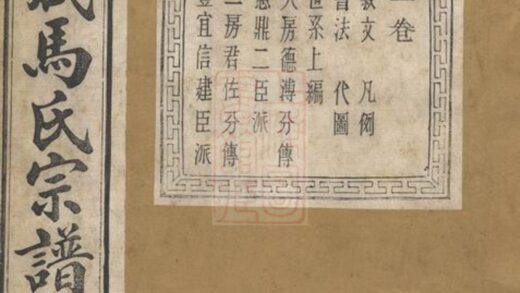 馬氏宗譜
卷
敘文 凡例
書法 代圖
世系上編
大房德溥分傳
惠鼎二臣派
二房君佐分傳
豐宜信建臣派